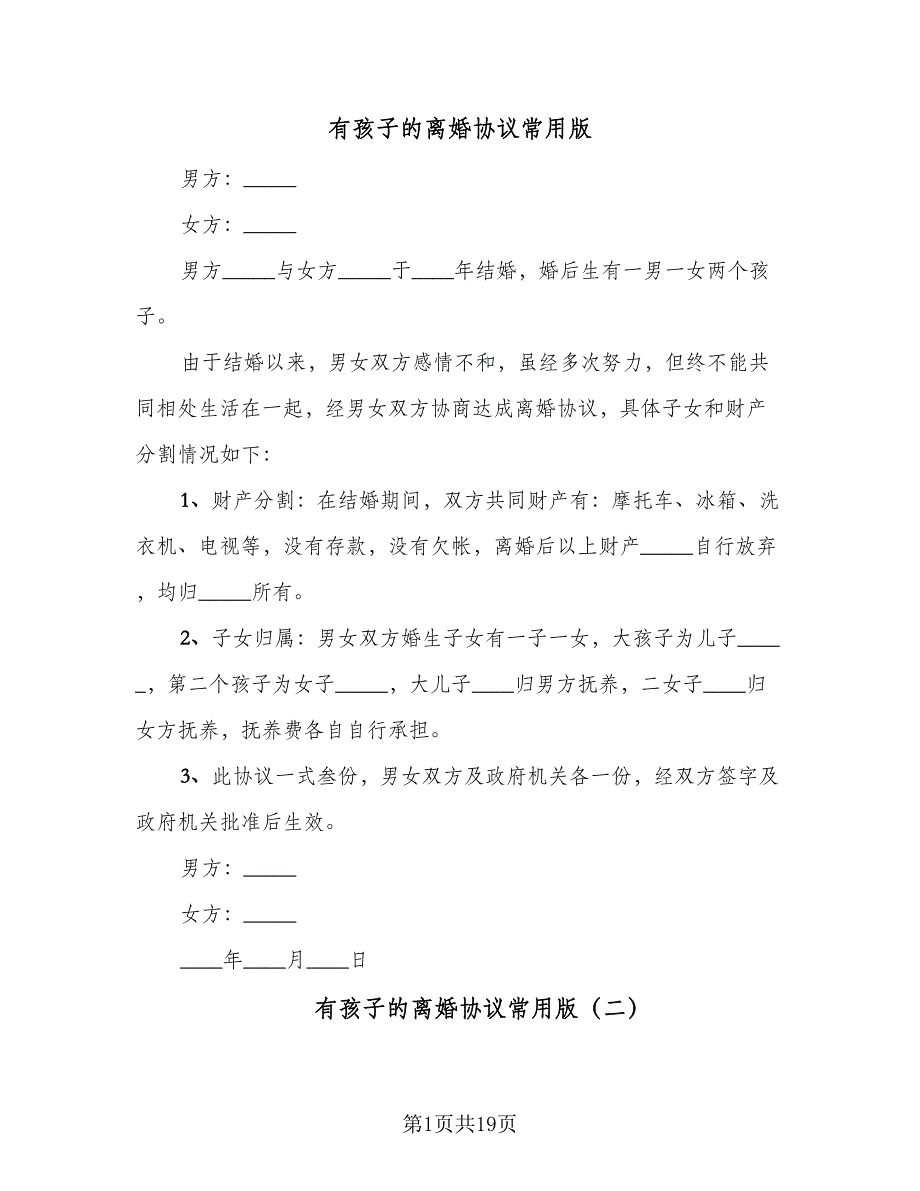 有孩子的离婚协议常用版
男方：_____
女方：_____
男方_____与女方_____于____年结婚，婚后生有一男一女两个孩
子。
由于结婚以来，男女双方感情不和，虽经多次努力，但终不能共
同相处生活在一起，经男女双方协商达成离婚协议，具体子女和财产
分割情况如下：
1、财产分割：在结婚期间，双方共同财产有：摩托车、冰箱、洗
衣机、电视等，没有存款，没有欠帐，离婚后以上财产_____自行放弃
，均归_____所有。
2、子女归属：男女双方婚生子女有一子一女，大孩子为儿子____
_，第二个孩子为女子_____，大儿子____归男方抚养，二女子____归
女方抚养，抚养费各自自行承担。
3、此协议一式叁份，男女双方及政府机关各一份，经双方签字及
政府机关批准后生效。
男方：_____
女方：_____
____年____月____日
有孩子的离婚协议常用版（二）
第1页共19页